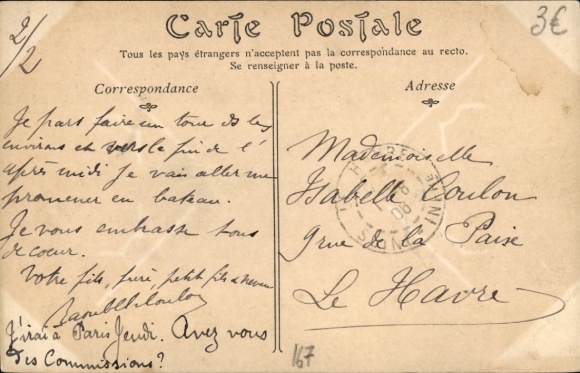 2/2
3€
Carte Postale
Tous les pays étrangers n'acceptent pas la correspondance au recto.
Se renseigner à la poste.
Correspondance
Adresse
Je pars faire un tour ds les
environs et vers le fin de l'
après midi je vais aller me
promener en bateau.
Je vous embrasse tous
de coeur.
Votre fils, frère, petit fils & neveu
Coulon
J'irai à Paris Jeudi. Avez vous
des Commissions?
Mademoiselle
Isabelle Coulon
9 rue de la Paix
Le Havre
167